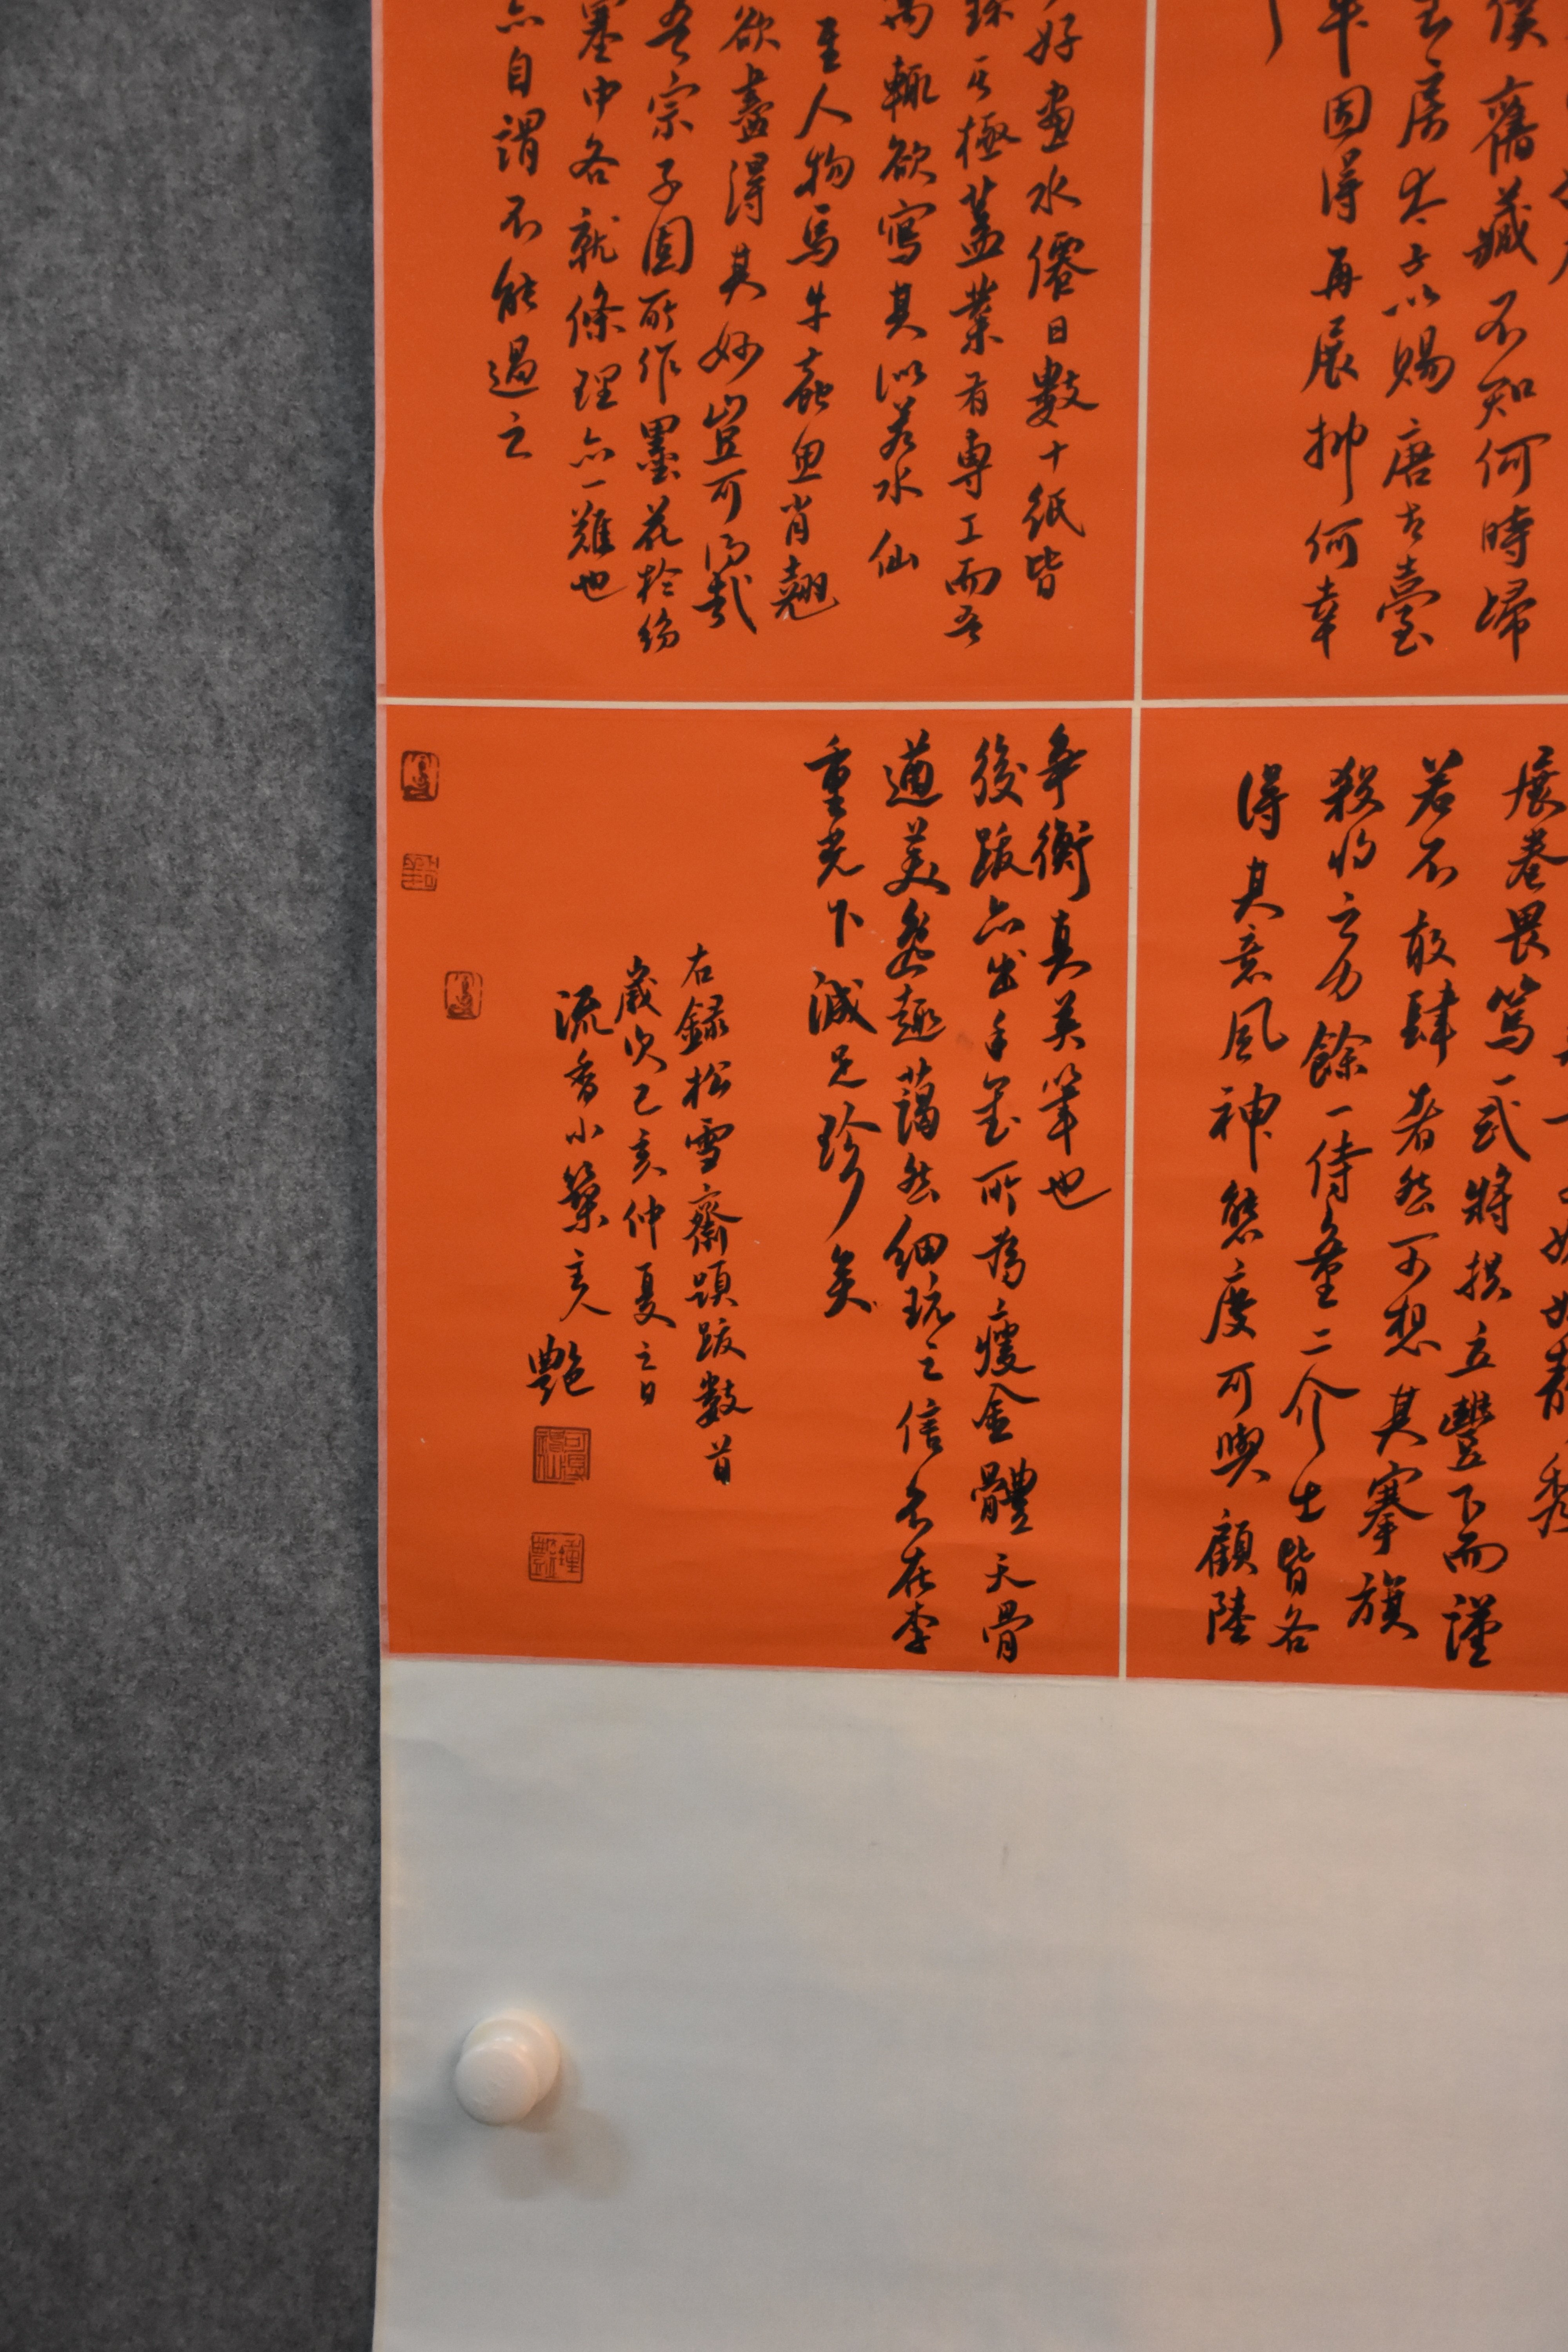 僕舊藏不知何時歸
居太子以賜唐古臺
年因得再展抑何幸
好畫水僊日數十紙皆
極蓋業有專工而吾
輒欲寫其似若水仙
至人物馬牛蟲魚肖翹
欲盡得其妙豈可得哉
吾宗子固所作墨花於紛
塞中各就條理亦一難也
亦自謂不能過之
展卷畏篤一武將拱立豐下而謹
若不敢肆者然可想其搴旗
殺將之力餘一侍童二介士皆各
得其意風神態度可與顧陸
爭衡真英筆也
後跋亦出手筆所為瘦金體天骨
遒美逸趣藹然細玩之信不在李
重光下誠足珍矣
右錄松雪齋題跋數首
歲次己亥仲夏之日
流香小築主人艷